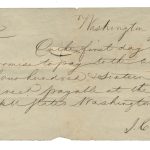 Washington
On the first day
promise to pay to the
four hundred & sixteen
payable at the
Washington
J. C